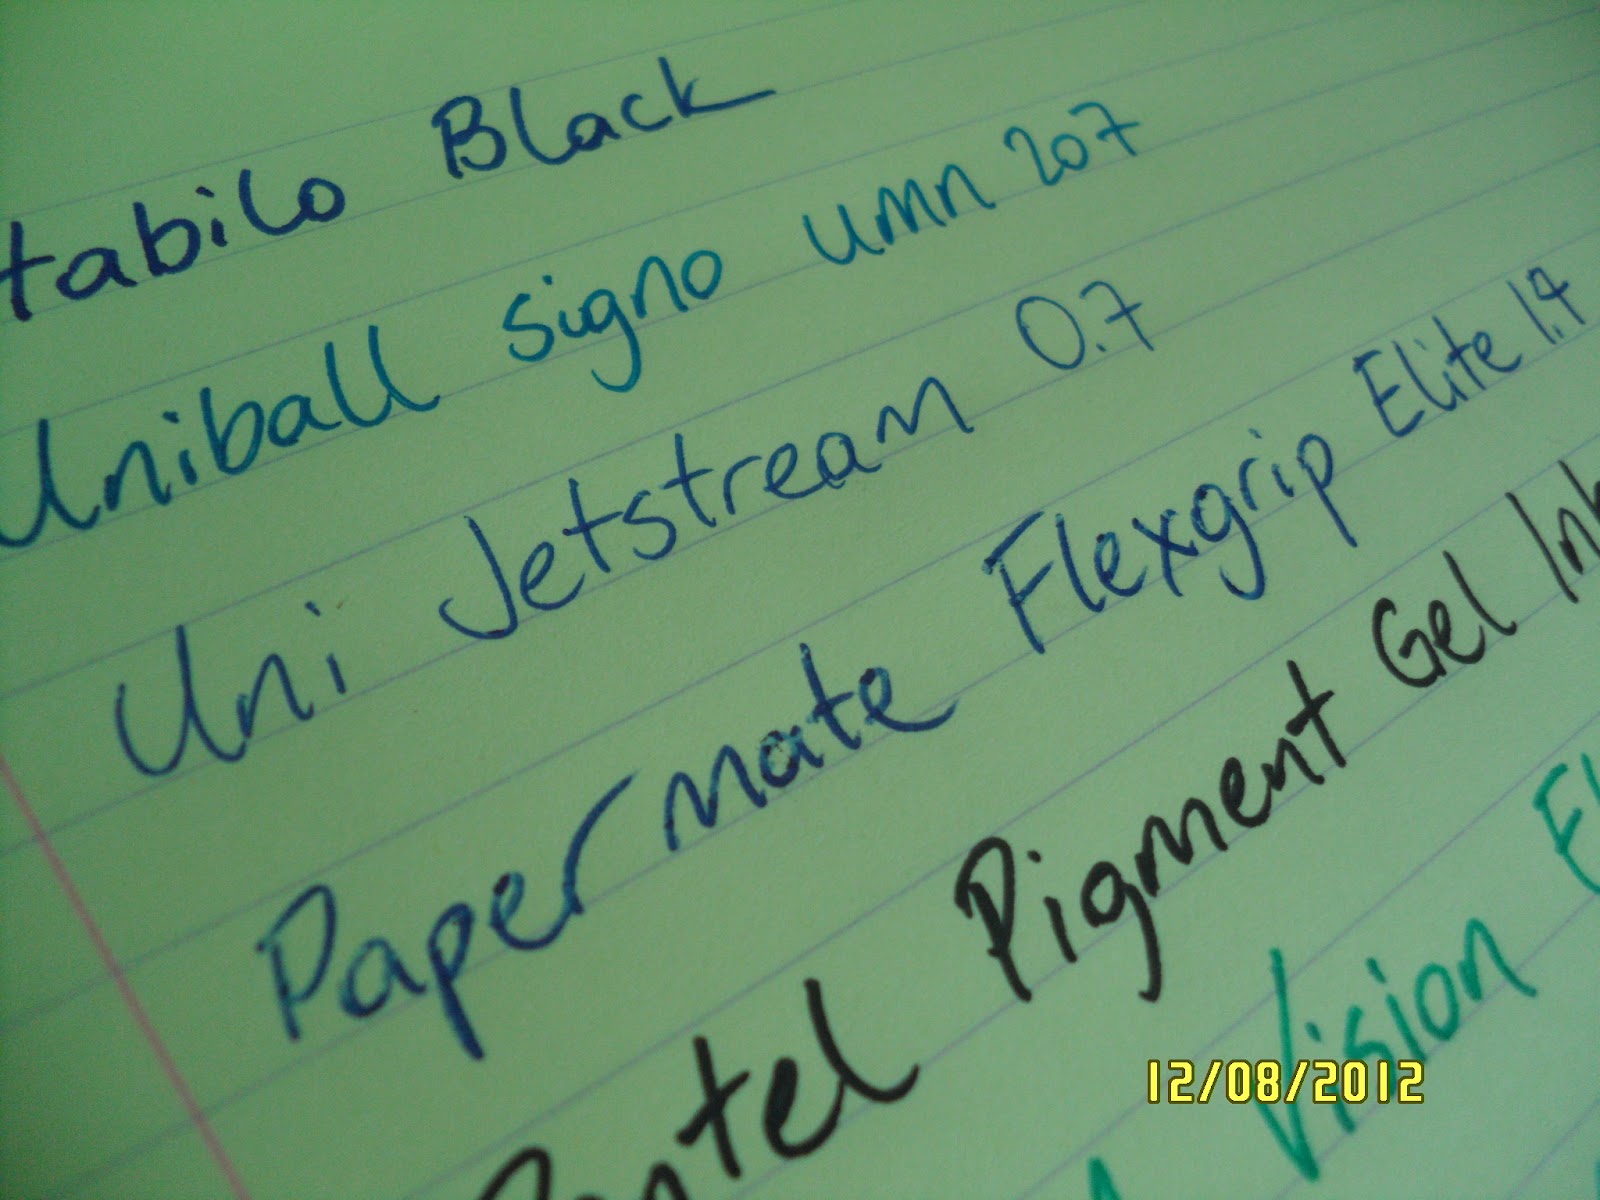 tabilo Black
Uniball signo umn 207
Uni Jetstream 0.7
Papermate Flexgrip Elite 1.4
Pentel Pigment Gel Ink
Vision El
12/08/2012